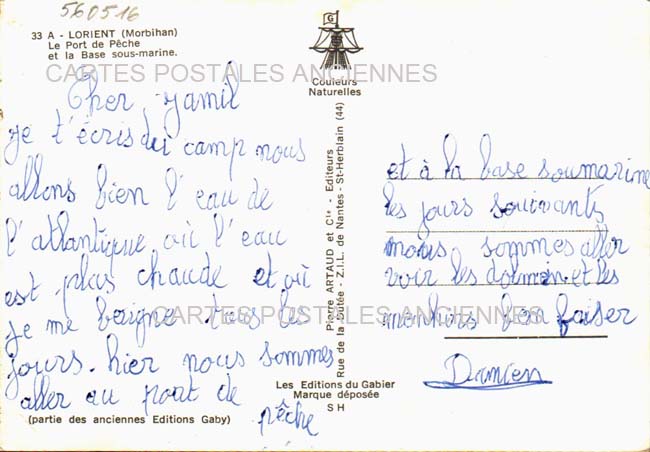 560516
33 A - LORIENT (Morbihan)
Le Port de Pêche
et la Base sous-marine.
G
Couleurs
Naturelles
CARTES POSTALES ANCIENNES
Cher Jamil
je t'écris du camp nous
allons bien l'eau de
l'atlantique où l'eau
est plus chaude et où
je me baigne tous les
jours. hier nous sommes
aller au port de
pêche
et à la base soumarine
les jours souivants
nous sommes aller
voir les dolmen et les
menhirs bon baiser
Damien
CARTES POSTALES ANCIENNES
Pierre ARTAUD et Cie - Editeurs
Rue de la Buttée - Z.I.L. de Nantes - St-Herblain (44)
Les Editions du Gabier
Marque déposée
S H
(partie des anciennes Editions Gaby)